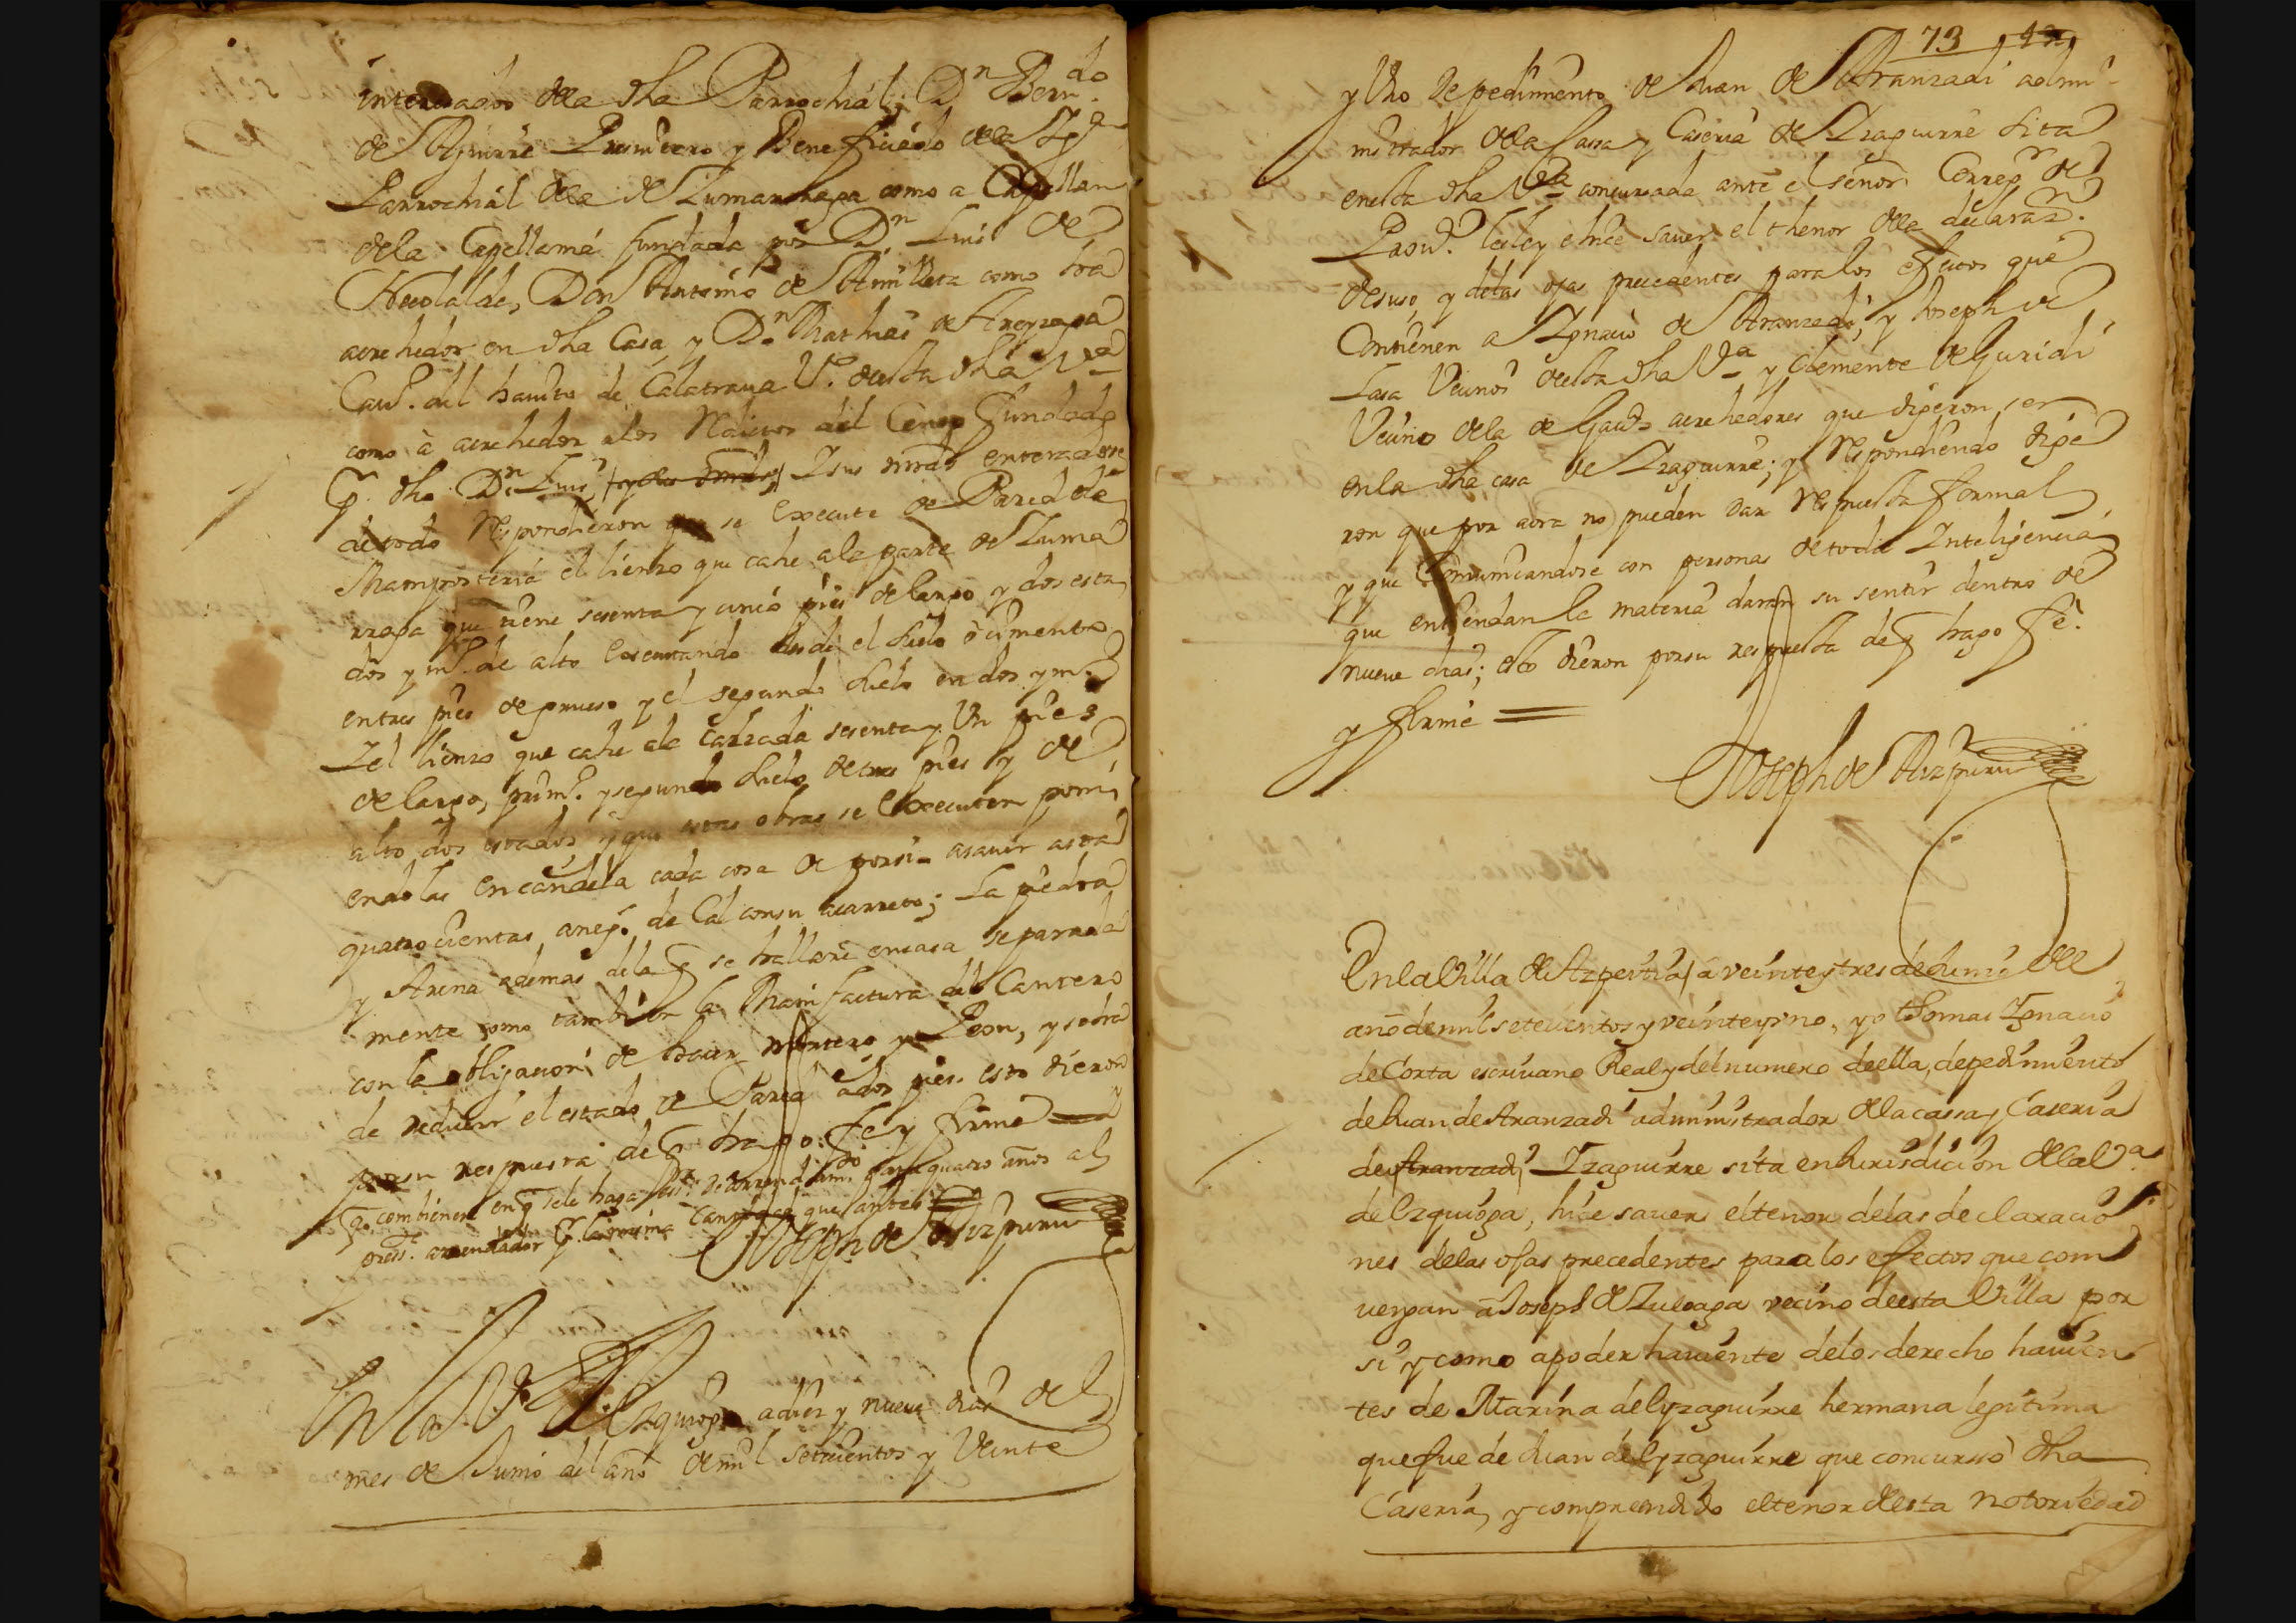 interesados dela dha Parrochial; Dn Berndo
de Aguirre Presuitero y Beneficiado dela Ygª
Parrochial dela de Zumarraga como a Capellan
dela Capellania fundada por Dn Luis de
Necolalde, Don Antonio de Amilleta como tra
acrehedor en dha Casa y Dn Mathias de Areyzaga
Cauº. del hauito de Calatraua Vº. desta dha Vª
como à acrehedor alos Reditos del Censo fundado
q. dho Dn Luis, Y sus mrds enterados
de todo Respondieron que se execute de Pared de
Mamposteria el lienzo que cahe ala parte de Zuma
rraga que tiene sesenta y cinco pies de largo y dos esta
dos y mº. de alto executando desde el suelo ò cimento
en tres pies de grueso y el segundo suelo en dos y mº
Y el lienzo que cahe ala calzada sesenta y Un pies
de largo, primº. y segundo suelo de tres pies y de
alto dos estados y que estas obras se executen poni
endolas en candela cada cosa de porsi asauer asta
quatrocientas aneg.s de Cal con su acarreto; La piedra
y Arena ademas dela q se hallare en casa separada
mente como tambien la Manifactura del Cantero
con la obligacion de hacer mortero y Peon, y sobra
de reducir el estado de Pared ados pies esto dieron
por su respuesta de q hago fe y firmé
y
qº combienen en q sele haga de arrendamº para quatro años al
prestº. arrendador q. la misma cantidad que antes
Joseph de Aizpuru
En la Vª de Ezquioga adiez y nueue dias del
mes de Junio del año de mil setecientos y Veinte
73
y Uno de pedimento de Juan de Aranzadi admi
nistrador dela Cassa y Caseria de Yzaguirre sita
enesta dha Vª concursada ante el señor Corregr de
Prouª. les ley e hice sauer el thenor dela declarazn.
de suso, y delas ojas precedentes para los efectos que
Contienen a Ygnacio de Aranzadi, y Joseph de
Lasa Vecinos desta dha Vª y Clemente de Guridi
Vecino dela de Gauª acrehedores que digeron ser
en la dha casa de Yzaguirre; y Respondiendo dige
ron que por aora no pueden dar Respuesta formal
y que Comunicandose con personas de toda Inteligencia
que entiendan la materia daran su sentir dentro de
nueue dias; esto dieron porsu respuesta de q hago fe.
y firmé
Joseph de Aizpuru
En la Villa de Azpeitia, a veinte y tres de Junio del
año de mil setecientos y veinte y vno, yo Thomas Ygnacio
de Corta escriuano Real y del numero de ella, de pedimiento
de Juan de Aranzadi administrador dela cassa y Caseria
de Aranzadi Yzaguirre sita en Jurisdicion dela Vª
de Ezquioga, hice sauer el tenor de las declaracio
nes delas ojas precedentes para los efectos que com
uengan a Joseph de Zuloaga vecino de esta Villa por
si y como apoder hauiente delos derecho hauien
tes de Marina de Yzaguirre hermana legitima
que fue de Juan de Yzaguirre que concursso dha
Caseria, y comprendido el tenor desta notoriedad